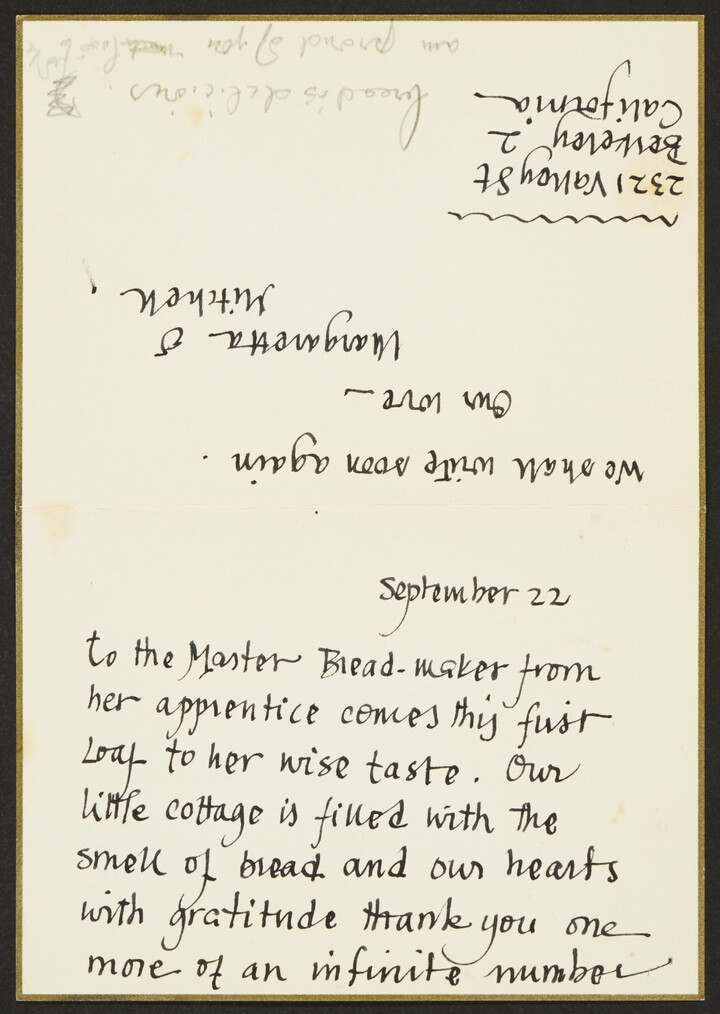 September 22
to the Master Bread-maker from
her apprentice comes this first
Loaf to her wise taste. Our
little cottage is filled with the
smell of bread and our hearts
with gratitude thank you one
more of an infinite number
We shall write soon again.
Our love –
Margaretta &
Mitchell,
2321 Valley St
Berkeley 2
California
bread is delicious.
am proud of you